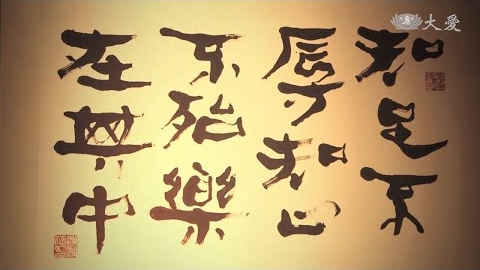 大愛
知足不
辱知止
不殆樂
在其中